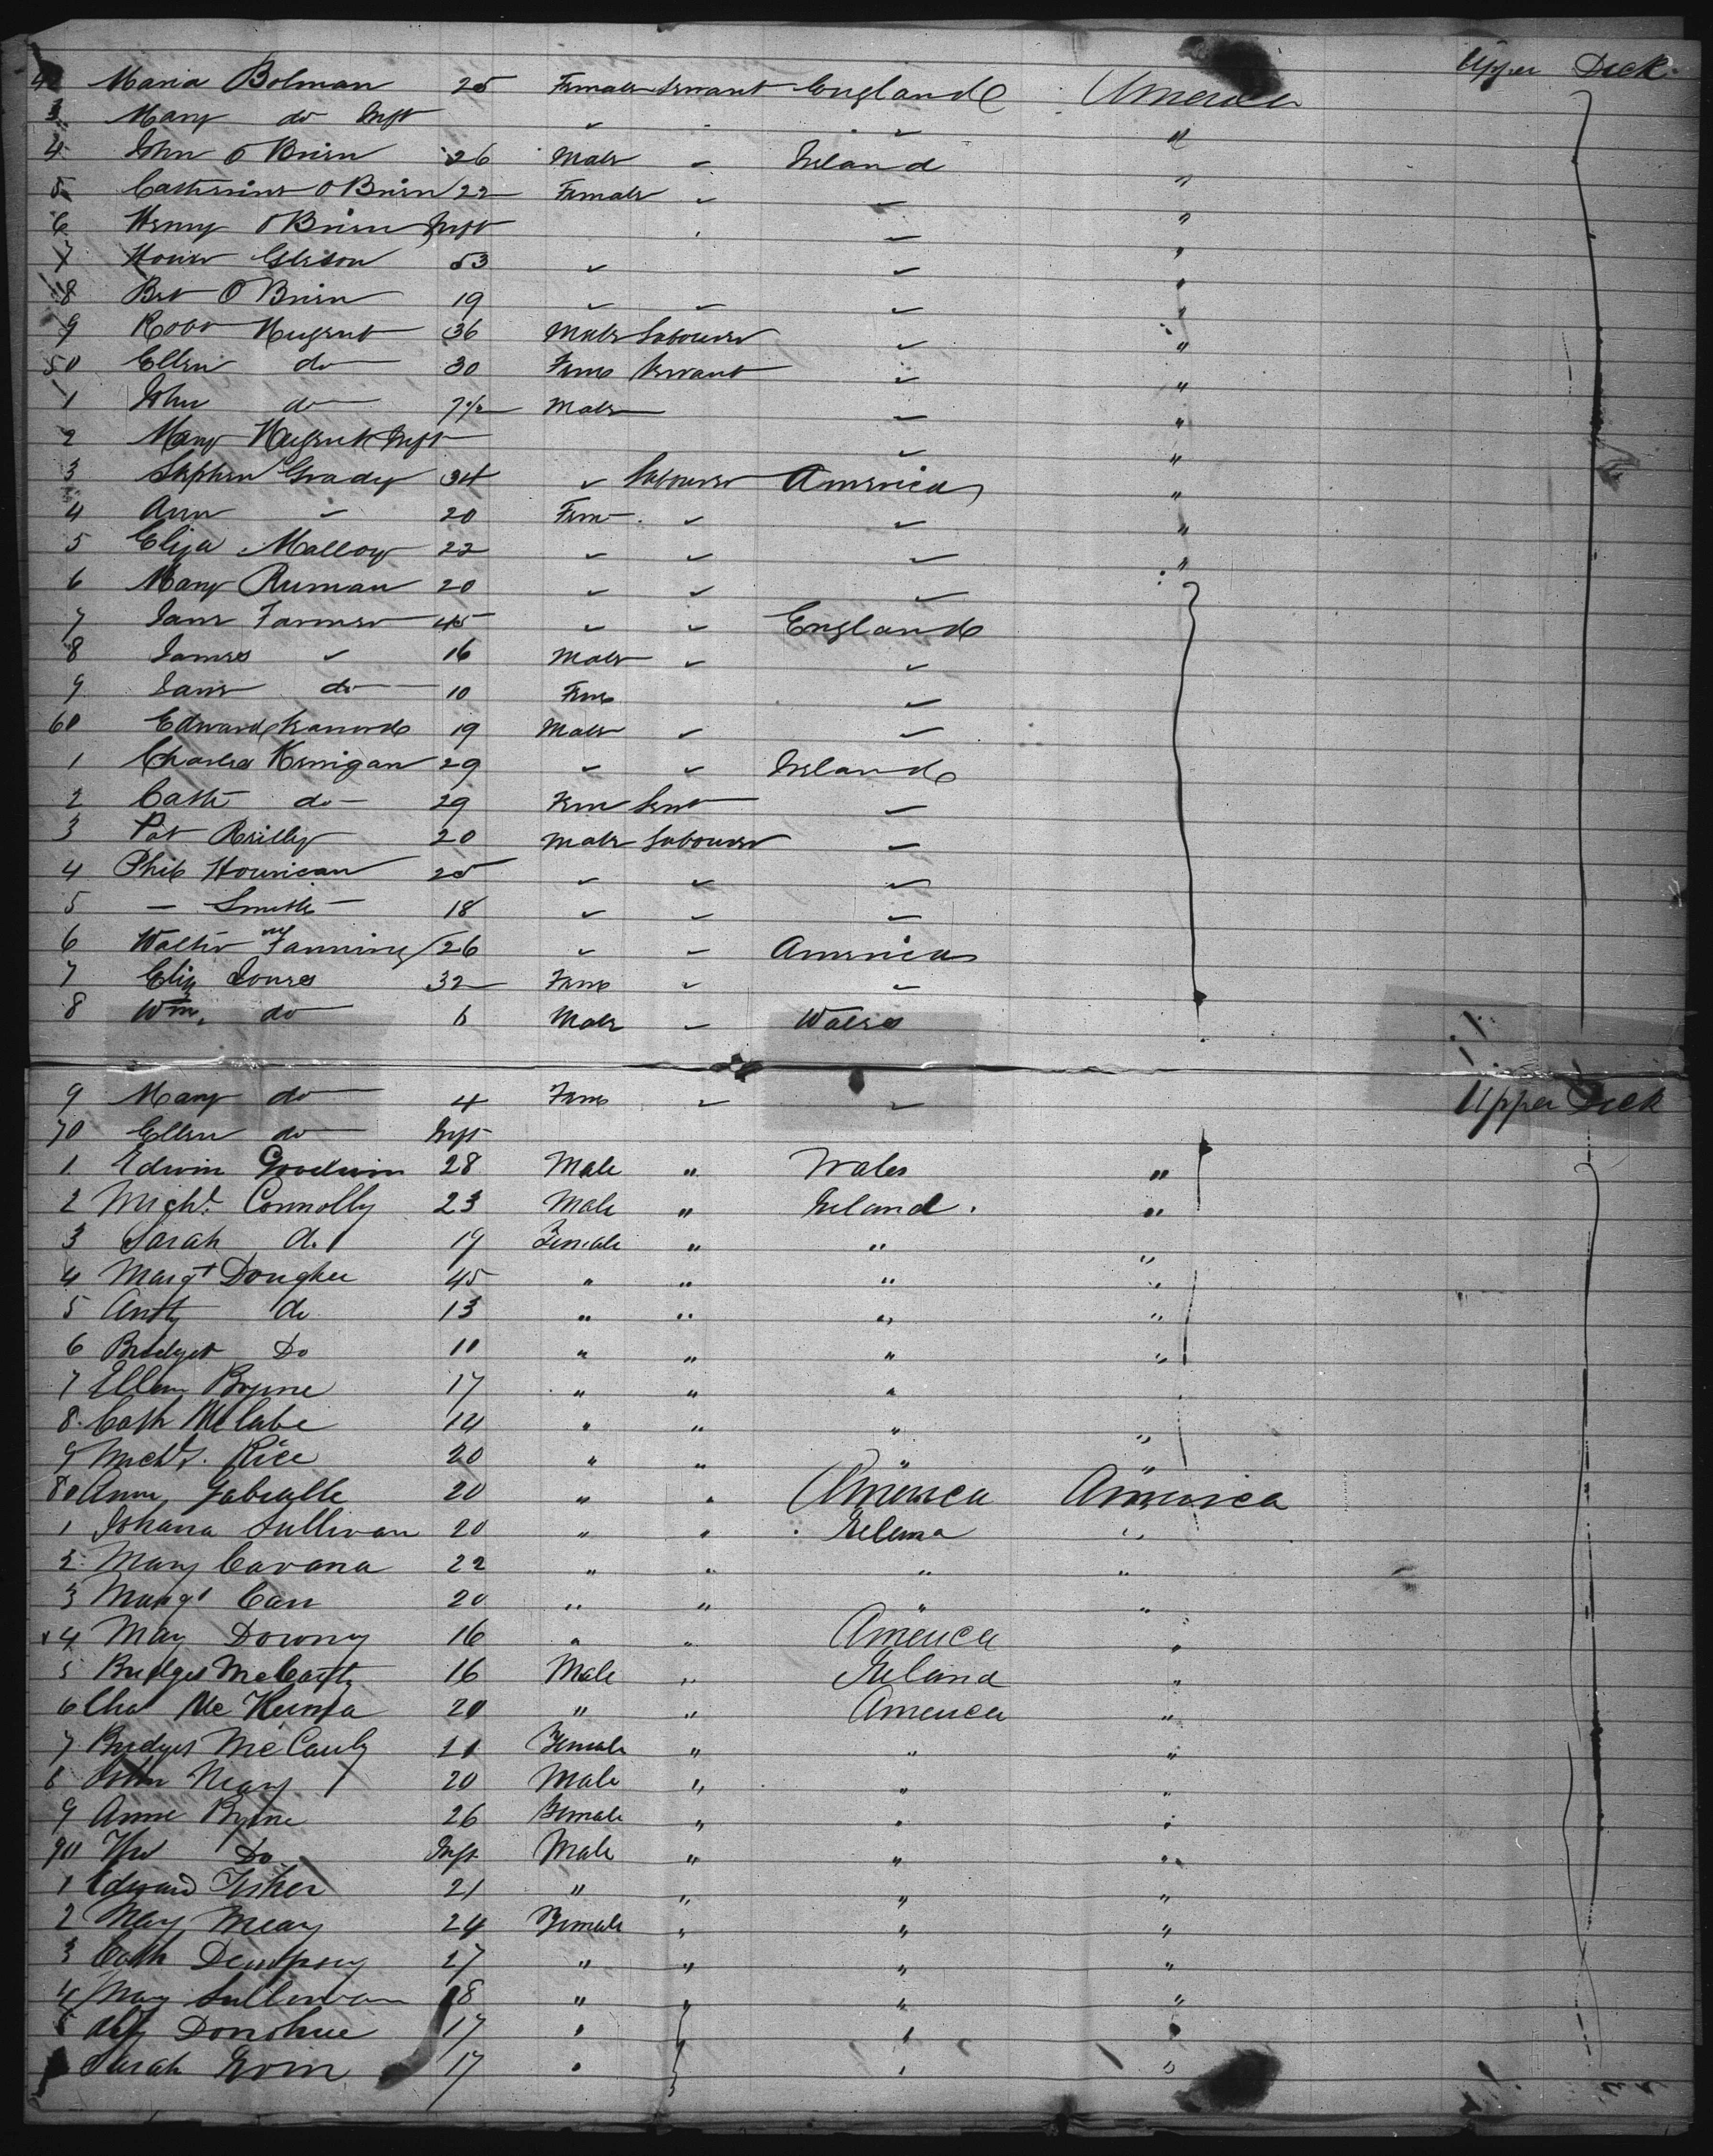 42 Maria Bolman 25 Female Servant England America Upper Deck
3 Mary do Inft ✓ ✓ "
4 John O Brien 26 Male " Ireland "
5 Catherine O Brien 22 Female ✓ ✓ "
6 Henry O Brien Inft ✓ "
7 Honor Gleson 53 ✓ ✓ "
8 Bet O Brien 19 ✓ ✓ ✓ "
9 Robt Nugent 36 Male Labourer ✓ "
50 Ellen do 30 Fem Servant ✓ "
1 John do Male ✓ "
2 Mary Nugent Inft ✓ "
3 Stephen Grady 34 ✓ Labourer America "
4 Ann ✓ 20 Fem ✓ ✓ "
5 Eliza Malloy 22 ✓ ✓ ✓ "
6 Mary 20 ✓ ✓ ✓
7 Jane Farmer 45 ✓ ✓ England
8 James ✓ 16 Male ✓ ✓
9 Jane do 10 Fem ✓
60 Edward 19 Male ✓ ✓
1 Charles Kernigan 29 ✓ ✓ Ireland
2 Cath do 29 Fem Servt ✓
3 Pat Reilly 20 Male Labourer ✓
4 Phil Hourican 25 ✓ ✓ ✓
5 — Smith 18 ✓ ✓ ✓
6 Walter Fanning 26 ✓ ✓ America
7 Eliz Jones 32 Fem ✓ ✓
8 Wm, do 6 Male ✓ Wales
9 Mary do 4 Fem ✓ ✓ Upper Deck
70 Ellen do Inft
1 Edwin Goodwin 28 Male " Wales "
2 Michl. Connolly 23 Male " Ireland. "
3 Sarah do 19 Female " " "
4 Margt Dougher 45 " " " "
5 Anty do 13 " " " "
6 Bridget Do 11 " " " "
7 Ellen Byrne 17 " " "
8 Cath McCabe 14 " " " "
9 Rice 20 " " " "
80 Ann 20 " " America America
1 Johana Sullivan 20 " " Ireland "
2 Mary Cavana 22 " " " "
3 Margt Carr 20 " " " "
4 May Downy 16 " " America "
5 Bridget McCarty 16 Male " Ireland "
6 Chas Mc Kenna 20 " " America "
7 Bridget McCauly 21 Female " " "
8 John Neary 20 Male " " "
9 Anne Byrne 26 Female " " "
90 Do Inft Male " " "
1 Edward Fisher 21 " " " "
2 May Meary 24 Female " " "
3 Cath Dempsey 27 " " " "
4 May Sullivan 18 " " " "
5 Donohue 17 " " "
Sarah 17 " " "